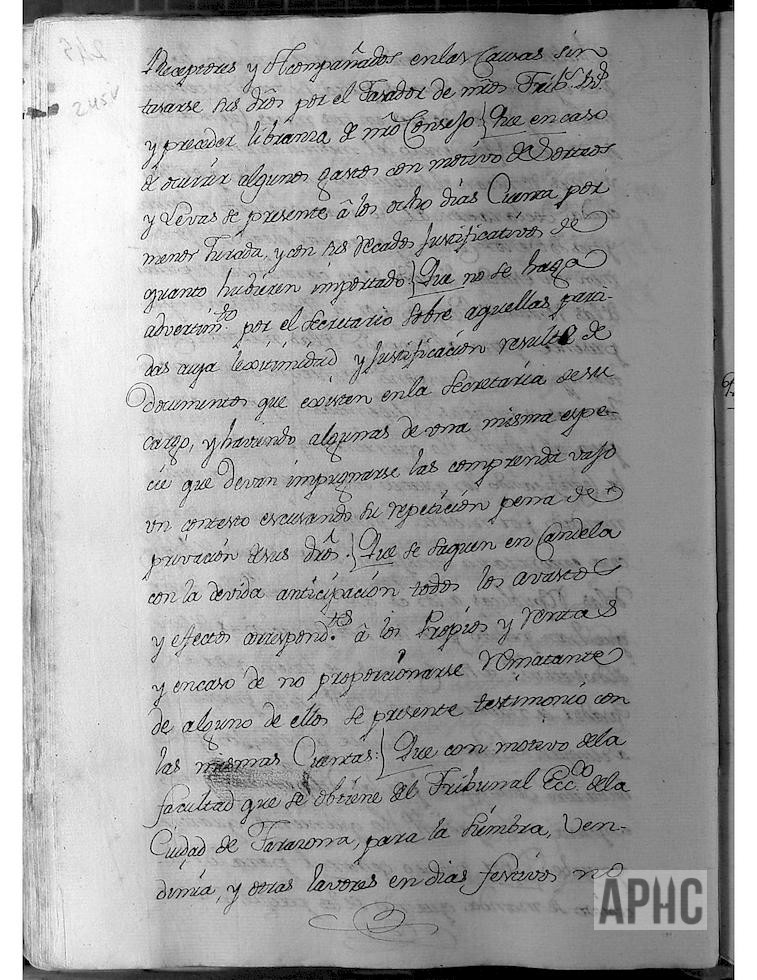 245
245v
Receptores y Acompañados en las Causas sin
tasarse sus dros por el Tasador de mio Tribl. Rl.
y preceder libranza de mio Consejo { Que en caso
de ocurrir algunos gastos con motivo de Sorteos
y Levas se presente â los ocho dias Cuenta por
menor Jurada, y con sus recados justificativos de
quanto hubieren importado: { Que no se haga
advertimto. por el Secretario sobre aquellas parti-
das cuya lexitimidad y justificación resulte de
documentos que existen en la Secretaría de su
cargo, y haviendo algunas de una misma espe-
cie que devan impugnarse las comprenda vajo
un contesto escusando su repetición pena de
privación de sus dros. { Que se saquen en Candela
con la devida anticipación todos los avastos
y efectos correspondtes. â los Propios y Rentas
y en caso de no proporcionarse rematante
de alguno de ellos se presente testimonio con
las mismas Cuentas: { Que con motivo de la
facultad que se obtiene del Tribunal Ecco. de la
Ciudad de Tarazona, para la siembra, Ven-
dimia, y otras lavores en dias festivos no
APHC